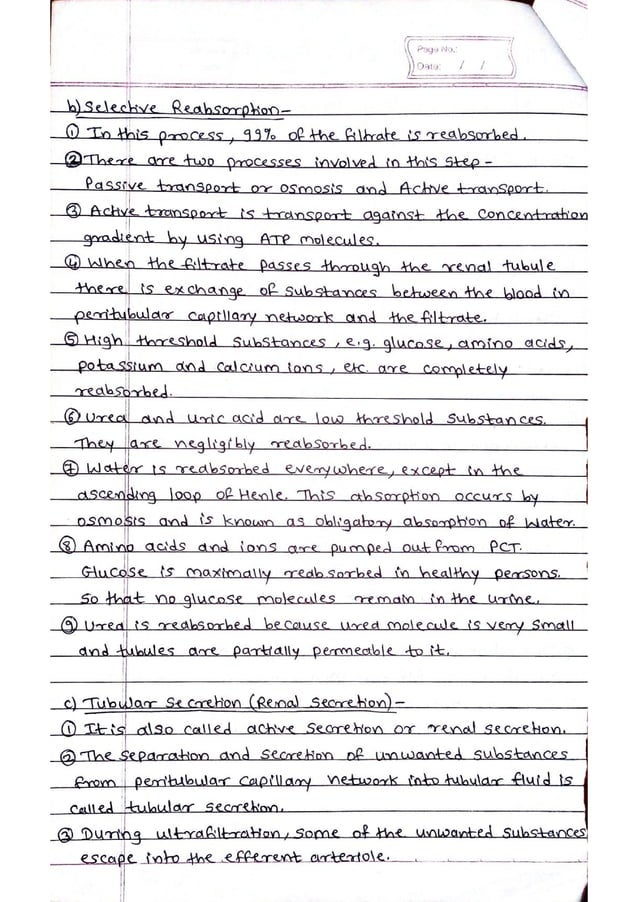 Page No.:
Date: / /
b) Selective Reabsorption-
① In this process, 99% of the filtrate is reabsorbed.
② There are two processes involved in this step -
Passive transport or osmosis and Active transport.
③ Active transport is transport against the concentration
gradient by using ATP molecules.
④ When the filtrate passes through the renal tubule
there is exchange of substances between the blood in
peritubular capillary network and the filtrate.
⑤ High threshold substances, e.g. glucose, amino acids,
potassium and calcium ions, etc. are completely
reabsorbed.
⑥ Urea and uric acid are low threshold substances.
They are negligibly reabsorbed.
⑦ Water is reabsorbed everywhere, except in the
ascending loop of Henle. This absorption occurs by
osmosis and is known as obligatory absorption of water.
⑧ Amino acids and ions are pumped out from PCT.
Glucose is maximally reabsorbed in healthy persons.
So that no glucose molecules remain in the urine.
⑨ Urea is reabsorbed because urea molecule is very small
and tubules are partially permeable to it.
c) Tubular Secretion (Renal Secretion)-
① It is also called active secretion or renal secretion.
② The separation and secretion of unwanted substances
from peritubular capillary network into tubular fluid is
called tubular secretion.
③ During ultrafiltration, some of the unwanted substances
escape into the efferent arteriole.